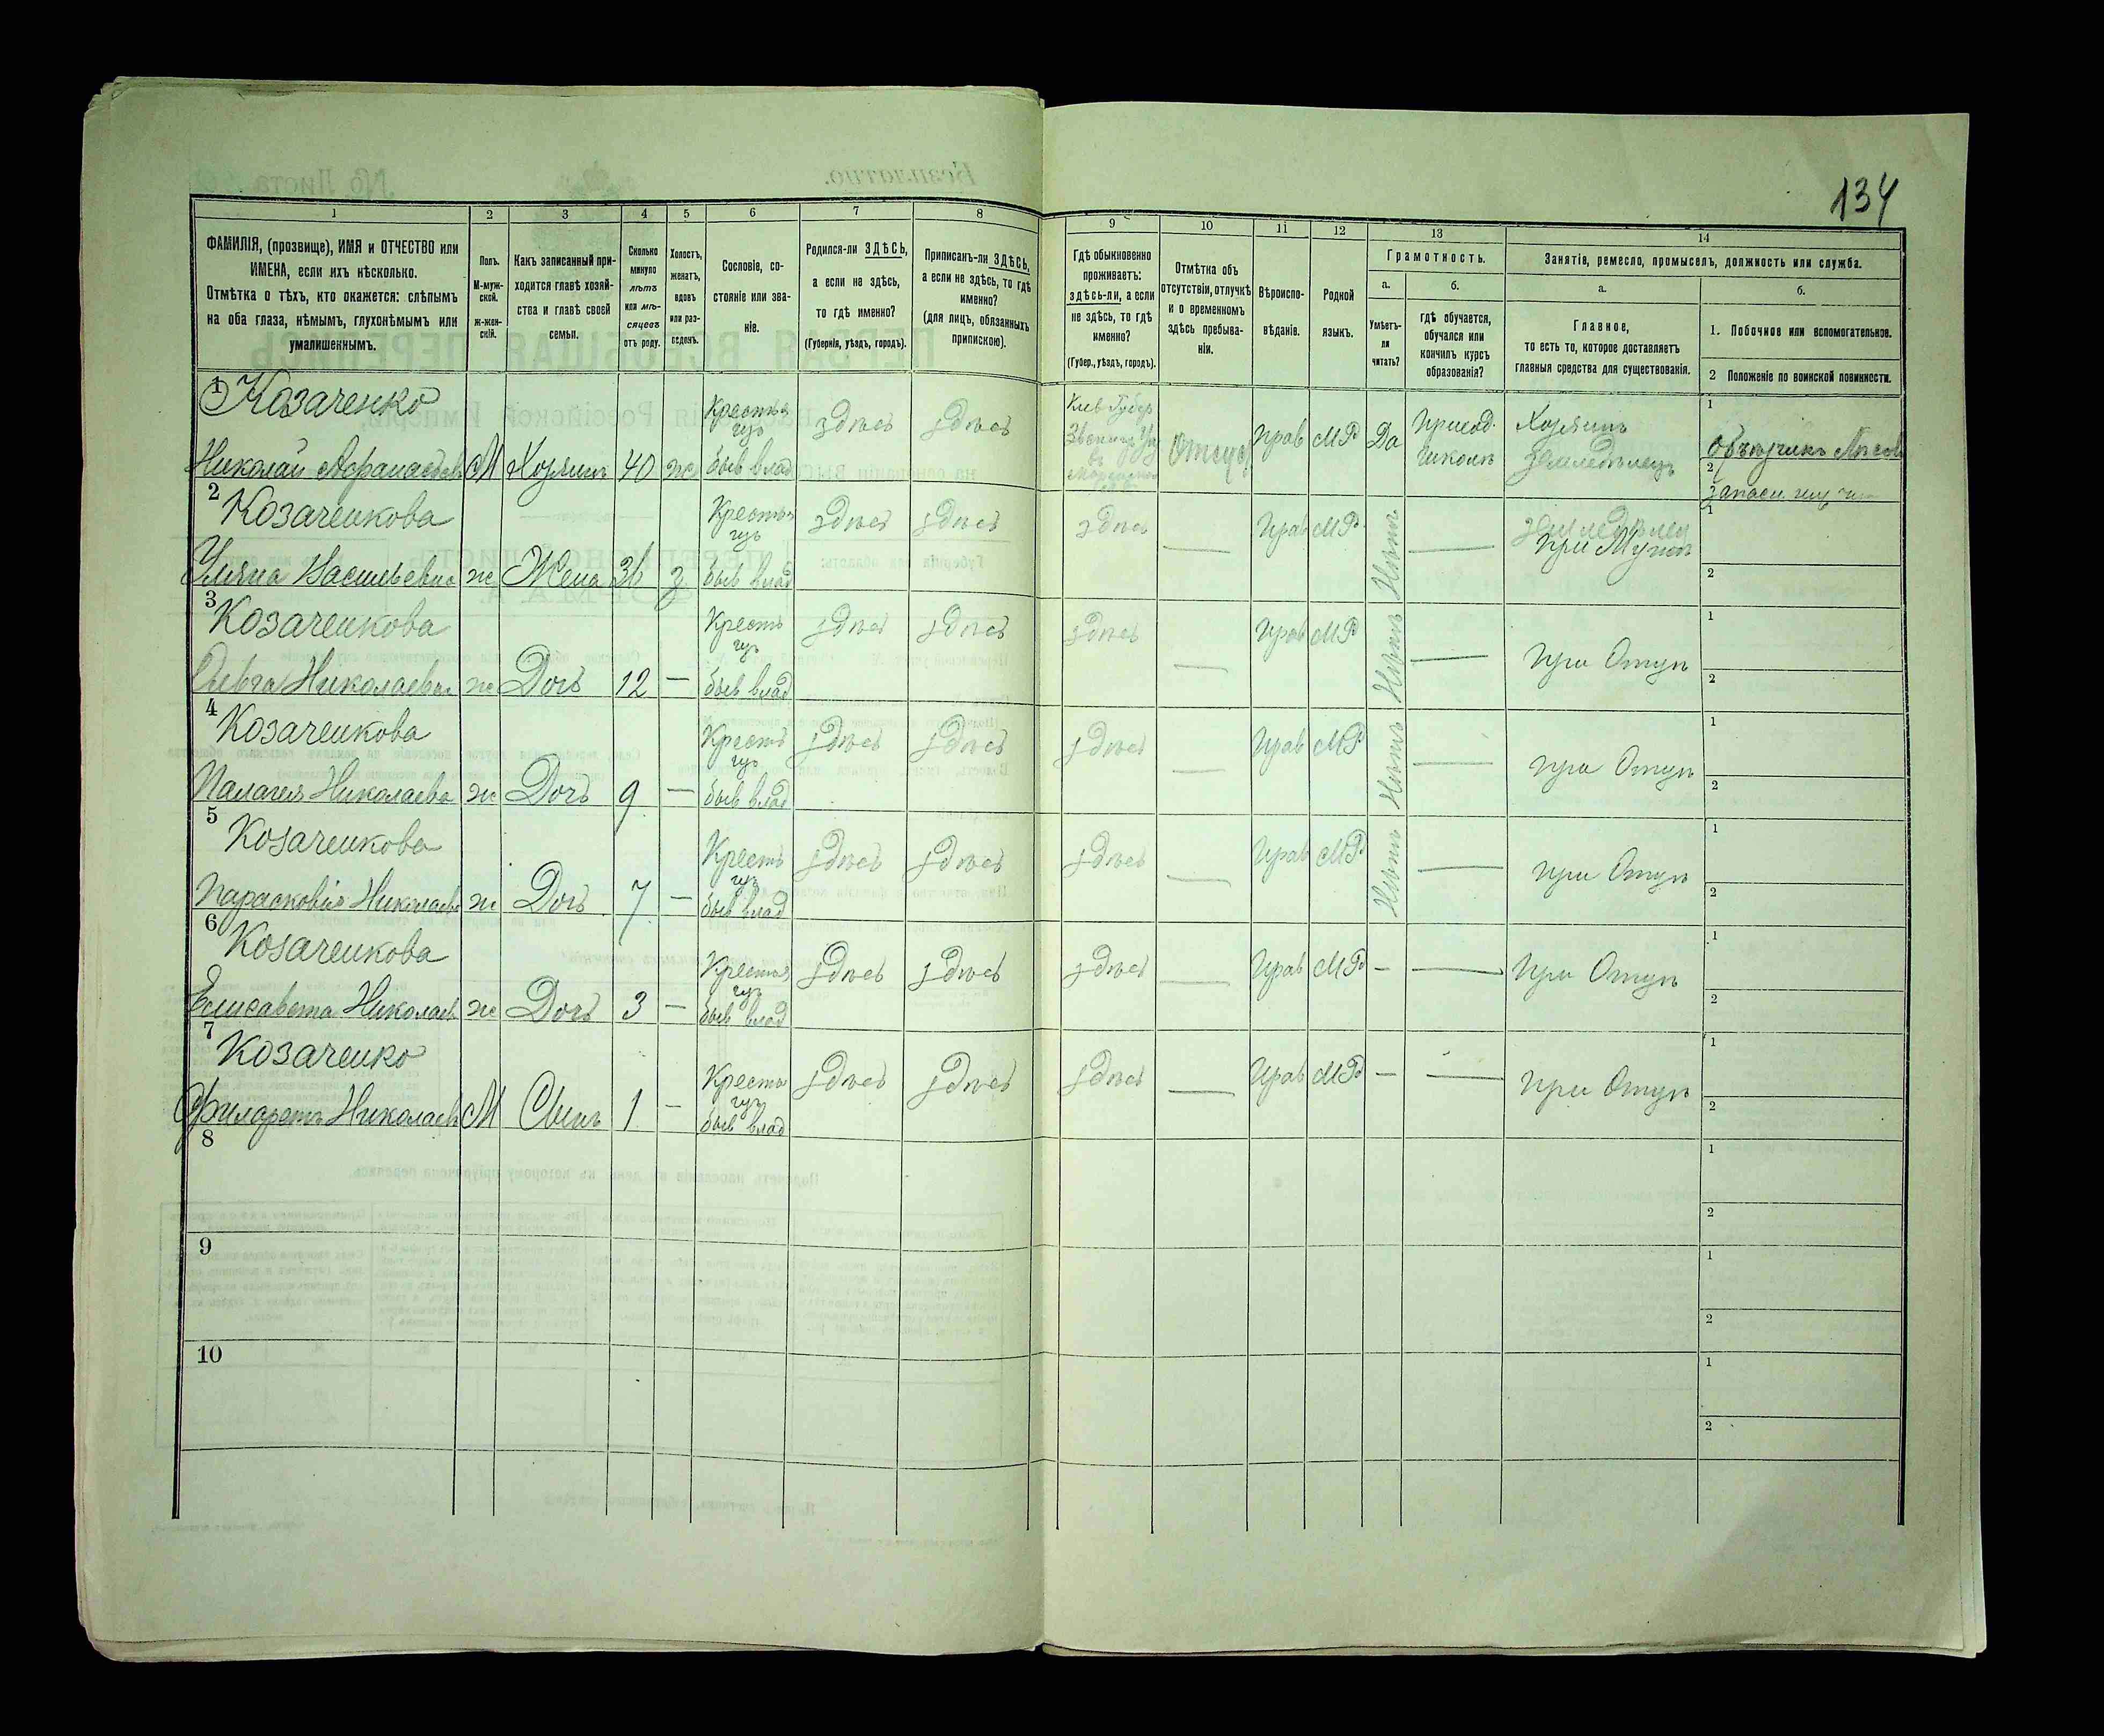 134
1 2 3 4 5 6 7 8 9 10 11 12 13 14
ФАМИЛІЯ, (прозвище), ИМЯ и ОТЧЕСТВО или
ИМЕНА, если ихъ нѣсколько.
Отмѣтка о тѣхъ, кто окажется: слѣпымъ
на оба глаза, нѣмымъ, глухонѣмымъ или
умалишеннымъ.
Полъ.
М-муж-
ской.
ж-жен-
скій.
Какъ записанный при-
ходится главѣ хозяй-
ства и главѣ своей
семьи.
Сколько
минуло
лѣтъ
или мѣ-
сяцевъ
отъ роду.
Холостъ,
женатъ,
вдовъ
или раз-
веденъ.
Сословіе, со-
стояніе или зва-
ніе.
Родился-ли ЗДѢСЬ,
а если не здѣсь,
то гдѣ именно?
(Губернія, уѣздъ, городъ).
Приписанъ-ли ЗДѢСЬ,
а если не здѣсь, то гдѣ
именно?
(для лицъ, обязанныхъ
припискою).
Гдѣ обыкновенно
проживаетъ:
здѣсь-ли, а если
не здѣсь, то гдѣ
именно?
(Губер., уѣздъ, городъ).
Отмѣтка объ
отсутствіи, отлучкѣ
и о временномъ
здѣсь пребыва-
ніи.
Вѣроиспо-
вѣданіе.
Родной
языкъ.
Грамотность.
а.
Умѣетъ-
ли
читать?
б.
гдѣ обучается,
обучался или
кончилъ курсъ
образованія?
Занятіе, ремесло, промыселъ, должность или служба.
а.
Главное,
то есть то, которое доставляетъ
главныя средства для существованія.
б.
1. Побочное или вспомогательное.
2 Положеніе по воинской повинности.
1 Козаченко
Николай Афанасьевъ М Хозяинъ 40 ж Крестья быв влад здѣсь здѣсь Киев Губер Отсут Прав МР Да Приход. школѣ Хозяинъ Земледѣлецъ
1 Объѣзчикъ Лѣсовъ
2
2 Козаченкова
Уляна Васильевна ж Жена 36 з Крестья быв влад здѣсь здѣсь здѣсь — Прав МР Нѣтъ — при Мужѣ
1
2
3 Козаченкова
Николаевна ж Дочь 12 — Кресть быв влад здѣсь здѣсь здѣсь — Прав МР Нѣтъ — при Отцѣ
1
2
4 Козаченкова
Палагея Николаева ж Дочь 9 — Кресть быв влад здѣсь здѣсь здѣсь — Прав МР Нѣтъ — при Отцѣ
1
2
5 Козаченкова
Парасковія Николаев ж Дочь 7 — Кресть быв влад здѣсь здѣсь здѣсь — Прав МР Нѣтъ — при Отцѣ
1
2
6 Козаченкова
Елисавета Николаев ж Дочь 3 — Крестья быв влад здѣсь здѣсь здѣсь — Прав МР — — при Отцѣ
1
2
7 Козаченко
Филаретъ Николаевъ М Сынъ 1 — Кресть быв влад здѣсь здѣсь здѣсь — Прав МР — — при Отцѣ
1
2
8
1
2
9
1
2
10
1
2